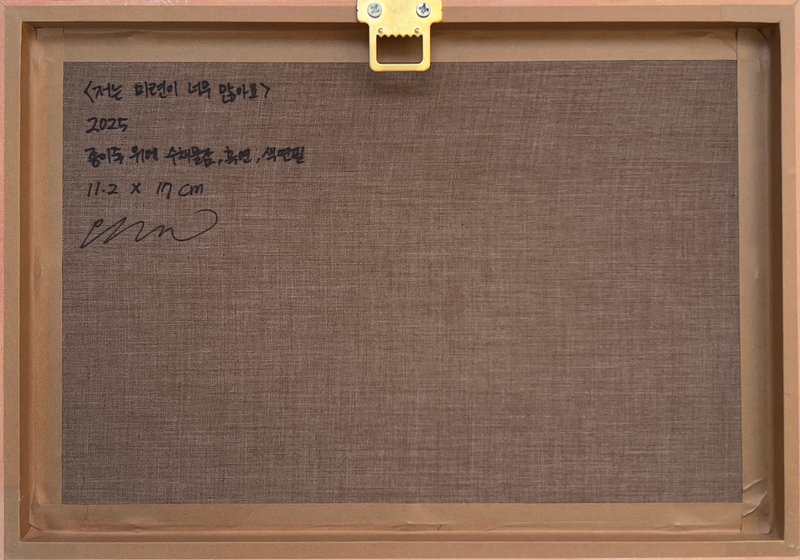 <저는 미련이 너무 많아요>
2025
종이죽 위에 수채물감, 흑연, 색연필
11.2 x 17 cm